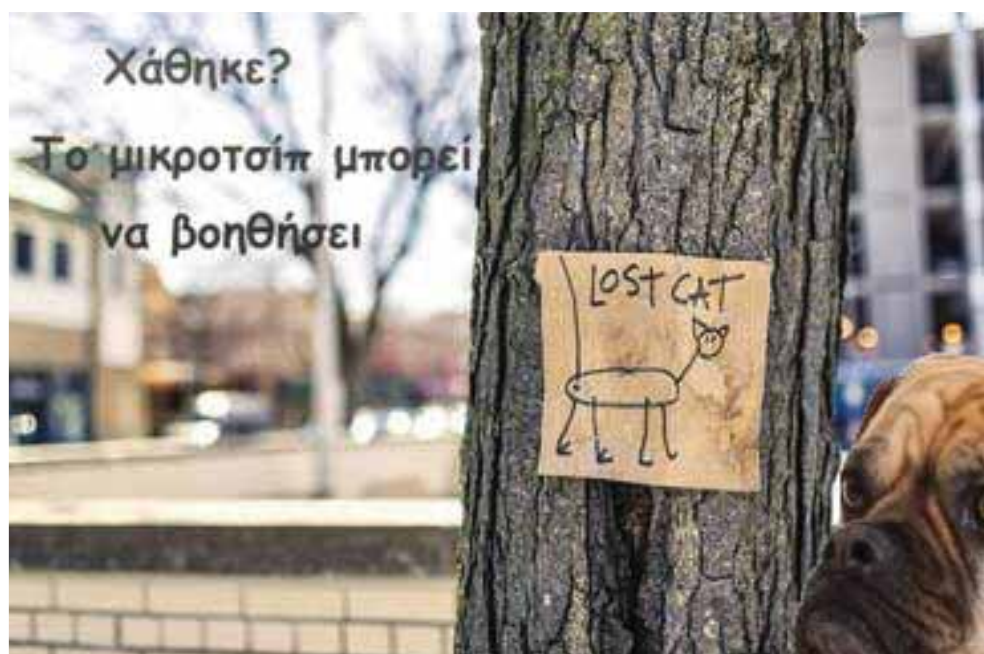 Χάθηκε?
Το μικροτσίπ μπορεί
να βοηθήσει
LOST CAT